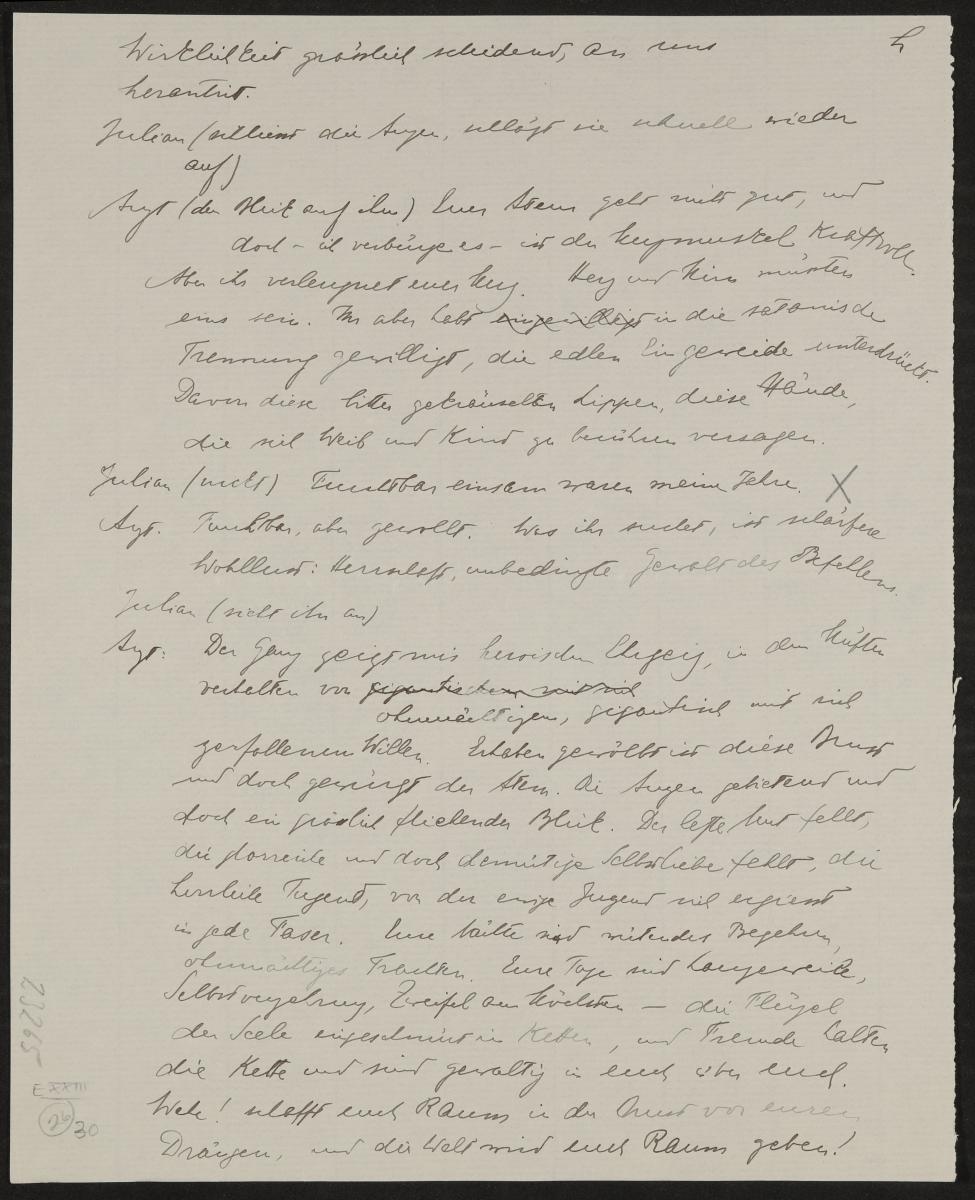 h
Wirklichkeit grässlich scheidend, an uns
herantritt.
Julian (schliesst die Augen, schlägt sie schnell wieder
auf)
Arzt (den Blick auf ihm) Euer Atem geht nicht gut, und
doch – ich verbürge es – ist der Herzmuskel kraftvoll.
Aber ihr verleugnet euer Herz. Herz und Hirn müssten
eins sein. Ihr aber habt eingewilligt in die satanische
Trennung gewilligt, die edlen Eingeweide unterdrückt.
Davon diese bitter gekräuselten Lippen, diese Hände,
die sich Weib und Kind zu berühren versagen.
Julian (nickt) Furchtbar einsam waren meine Jahre. X
Arzt. Furchtbar, aber gewollt. Was ihr suchet, ist schärfere
Wohllust: Herrschaft, unbedingte Gewalt des Befehlens.
Julian (sieht ihn an)
Arzt: Der Gang zeigt mir heroischen Ehrgeiz, in den Hüften
verhalten von gigantischem mit sich
ohnmächtigem, gigantisch mit sich
zerfallenem Willen. Erhaben gewölbt ist diese Brust
und doch gewürgt der Atem. Die Augen gebietend und
doch ein grässlich fliehender Blick. Der letzte Mut fehlt,
die und doch demütige Selbstliebe fehlt, die
herrliche Tugend, von der ewige Jugend sich ergiesst
in jede Faser. Eure Nächte sind wütendes Begehren,
ohnmächtiges Trachten. Eure Tage sind Langeweile,
Selbstverzehrung, Zweifel am Höchsten – die Flügel
der Seele eingeschnürt in Ketten, und Fremde halten
die Kette und sind gewaltig in euch über euch.
Wehe! schafft euch Raum in der Brust vor euren
Drängen, und die Welt wird euch Raum geben!
23265
E XXIII
26
30